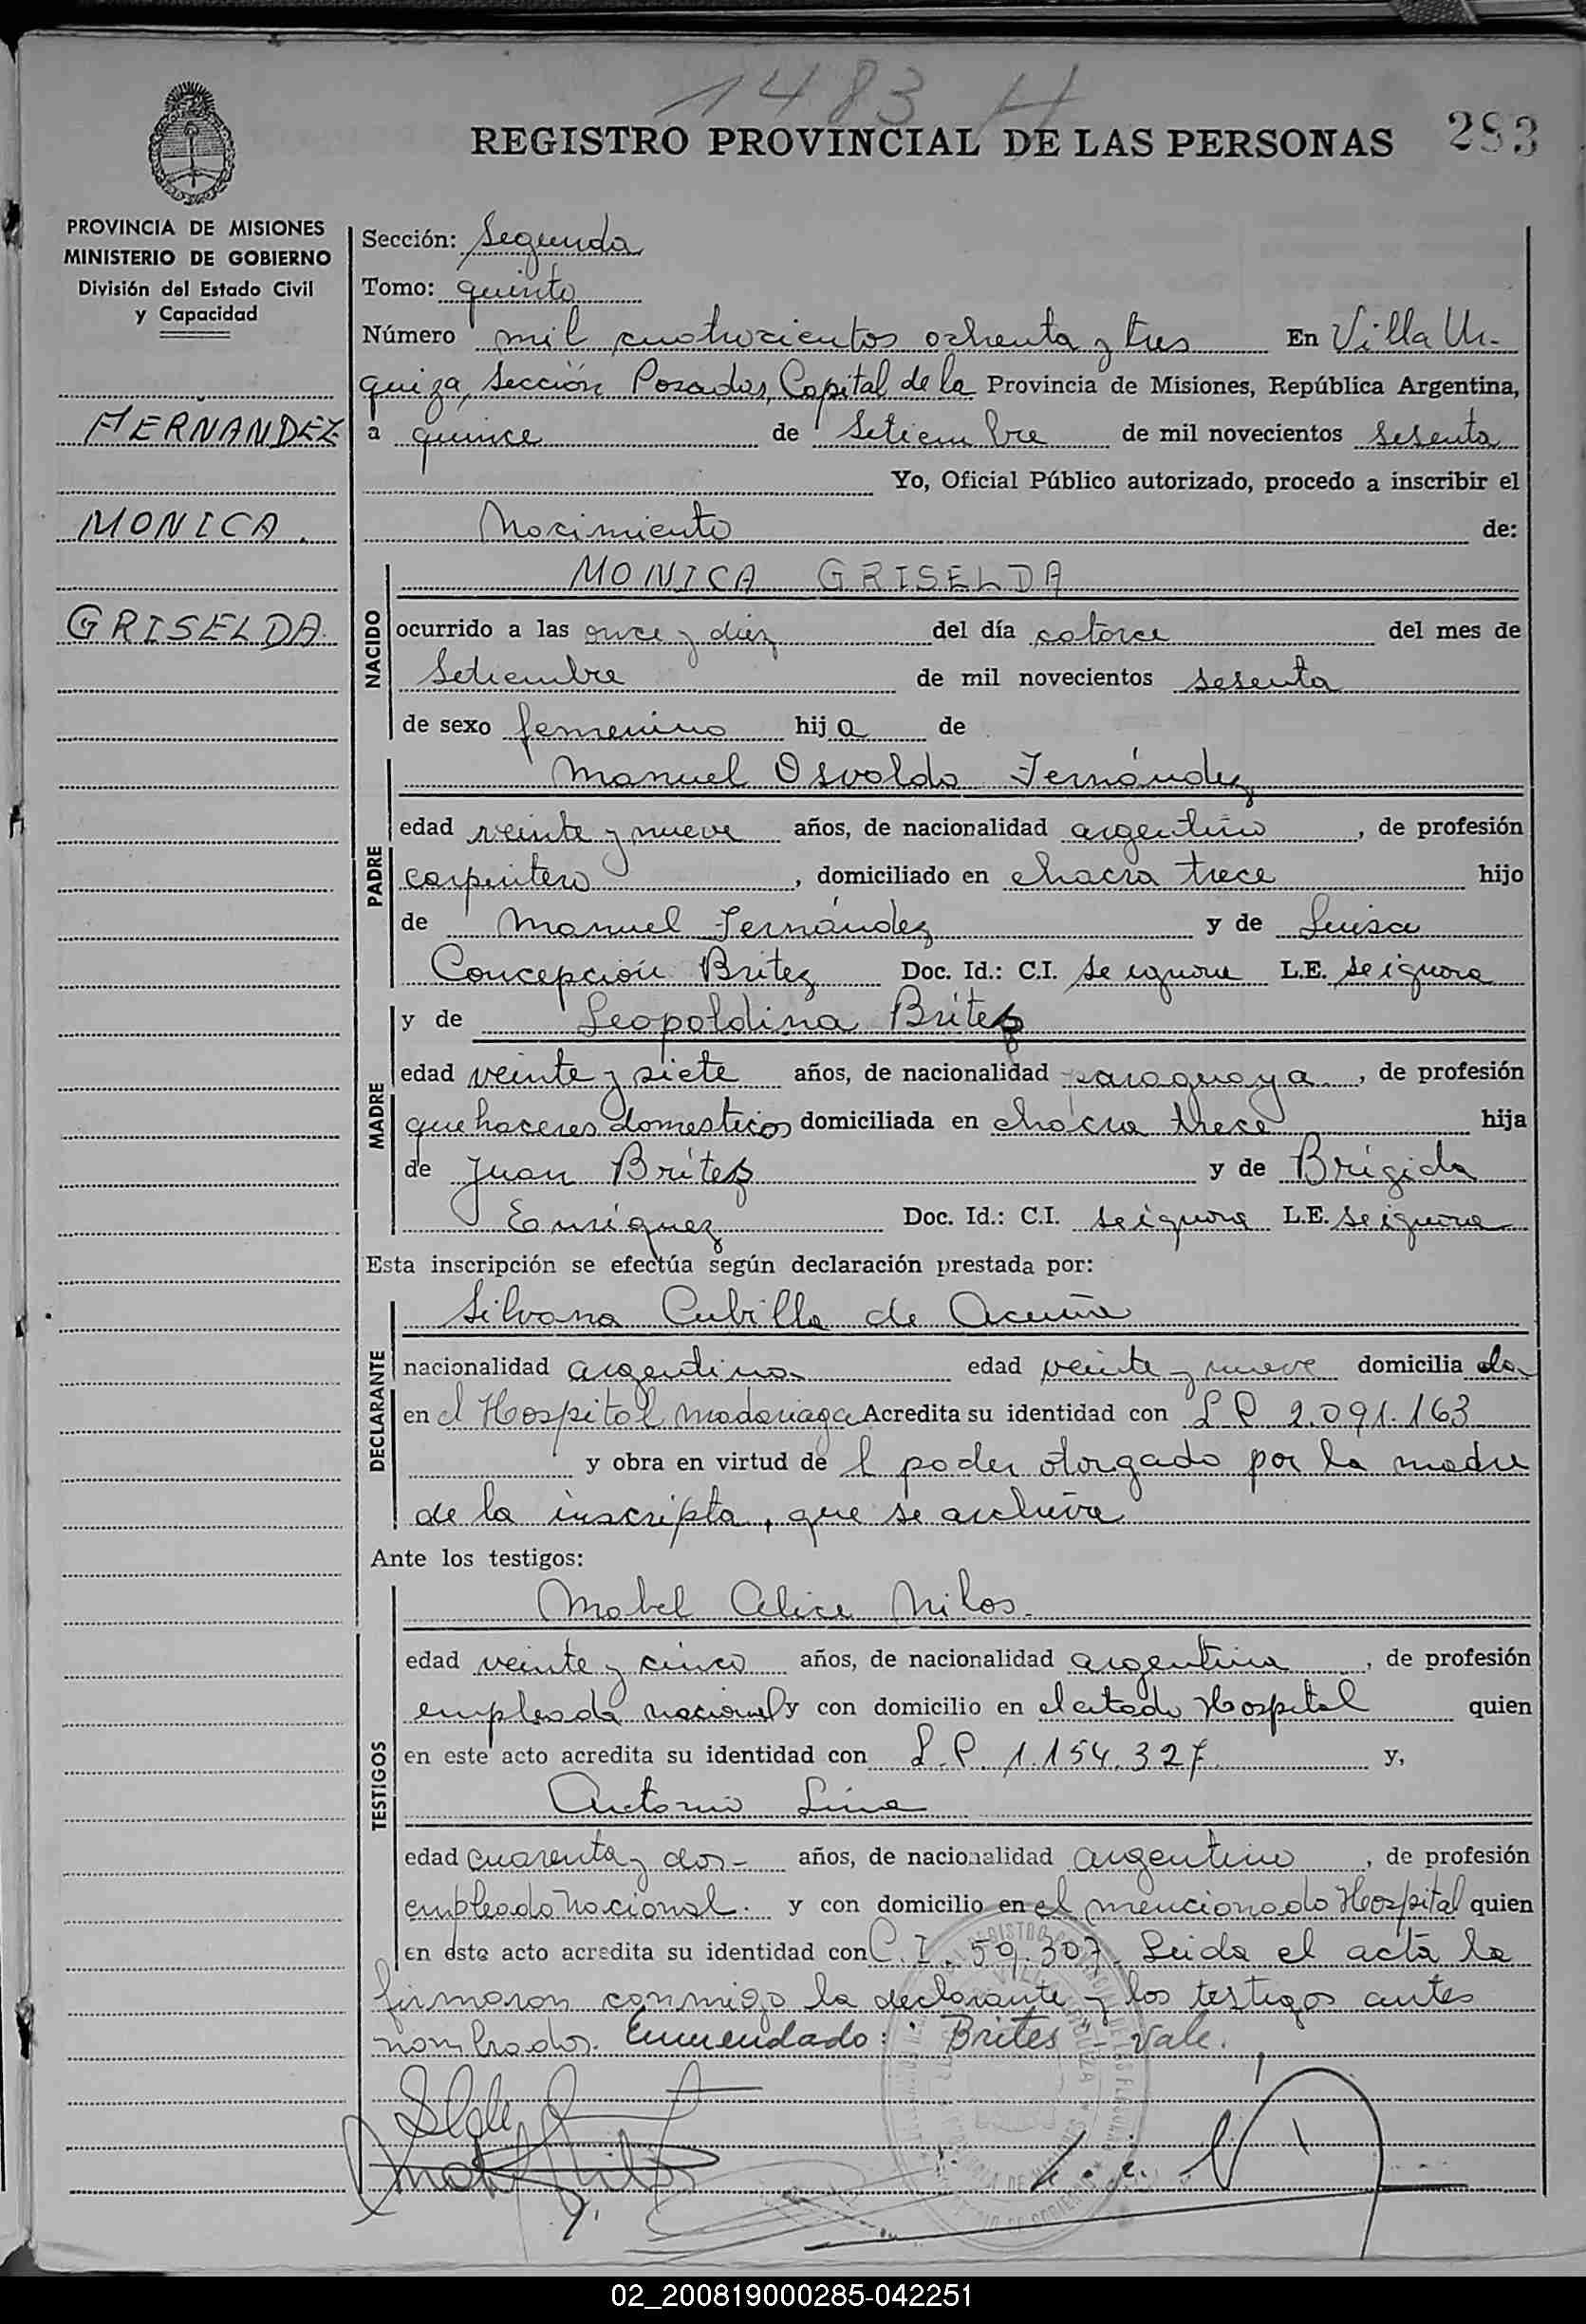 1483 H
REGISTRO PROVINCIAL DE LAS PERSONAS 283
PROVINCIA DE MISIONES
MINISTERIO DE GOBIERNO
División del Estado Civil
y Capacidad
HERNANDEZ
MONICA.
GRISELDA.
Sección: Segunda
Tomo: quinto
Número mil cuatrocientos ochenta y tres En Villa Ur-
quiza, Sección Posadas, Capital de la Provincia de Misiones, República Argentina,
a quince de Setiembre de mil novecientos sesenta
Yo, Oficial Público autorizado, procedo a inscribir el
Nacimiento de:
NACIDO
MONICA GRISELDA
ocurrido a las once y diez del día catorce del mes de
Setiembre de mil novecientos sesenta
de sexo femenino hija de
PADRE
Manuel Osvaldo Fernández
edad veinte y nueve años, de nacionalidad argentino, de profesión
carpintero, domiciliado en chacra trece hijo
de Manuel Fernández y de Luisa
Concepción Britez Doc. Id.: C.I. se ignora L.E. se ignora
MADRE
y de Leopoldina Brites
edad veinte y siete años, de nacionalidad paraguaya, de profesión
quehaceres domesticos domiciliada en chacra trece hija
de Juan Brites y de Brígida
Enríquez Doc. Id.: C.I. se ignora L.E. se ignora
Esta inscripción se efectúa según declaración prestada por:
DECLARANTE
Silvana Cubilla de Acuña
nacionalidad argentina edad veinte y nueve domicilia da
en el Hospital Madariaga Acredita su identidad con L P 2.091.163
y obra en virtud de l poder otorgado por la madre
de la inscripta, que se archiva
Ante los testigos:
TESTIGOS
Mabel Alice Milos.
edad veinte y cinco años, de nacionalidad argentina, de profesión
empleada nacional y con domicilio en el citado Hospital quien
en este acto acredita su identidad con L.P. 1.154.327 y,
Antonio Lina
edad cuarenta y dos- años, de nacionalidad argentino, de profesión
empleado nacional. y con domicilio en el mencionado Hospital quien
en este acto acredita su identidad con C.I. 59.307. Leida el acta la
firmaron conmigo la declarante y los testigos antes
nombrados. Enmendado: "Brites" Vale.
02_200819000285-042251